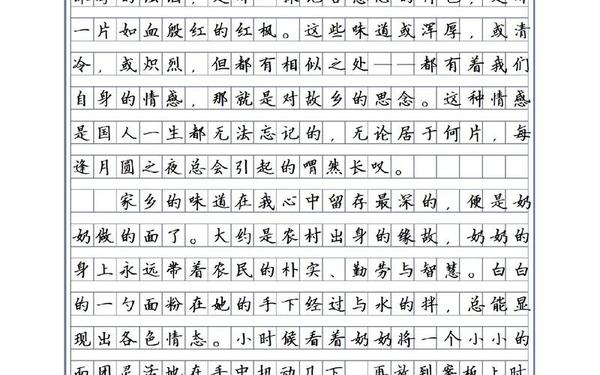 一片如血殷红的红枫。这些味道或浑厚，或清
冷，或炽烈，但都有相似之处——都有着我们
自身的情感，那就是对故乡的思念。这种情感
是国人一生都无法忘记的，无论居于何片，每
逢月圆之夜总会引起的喟然长叹。
家乡的味道在我心中留存最深的，便是奶
奶做的面了。大约是农村出身的缘故，奶奶的
身上永远带着农民的朴实、勤劳与智慧。白白
的一勺面粉在她的手下经过与水的拌，总能显
现出各色情态。小时候看着奶奶将一个小小的
面团灵活地在手中扭动几下，再放到案板上时